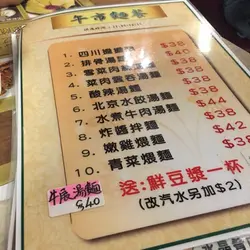 午市麵餐
1 四川擔擔麵 $38
2 排骨湯麵 $38
3 雪菜肉絲湯麵 $38
4 菜肉雲吞湯麵 $38
5 酸辣湯麵
6 北京水餃湯麵
7 水煮牛肉湯麵
8 炸醬拌麵
9 嫩雞煨麵
10 青菜煨麵
送:鮮豆漿一杯
(改汽水另加$2)
牛展湯麵
$40